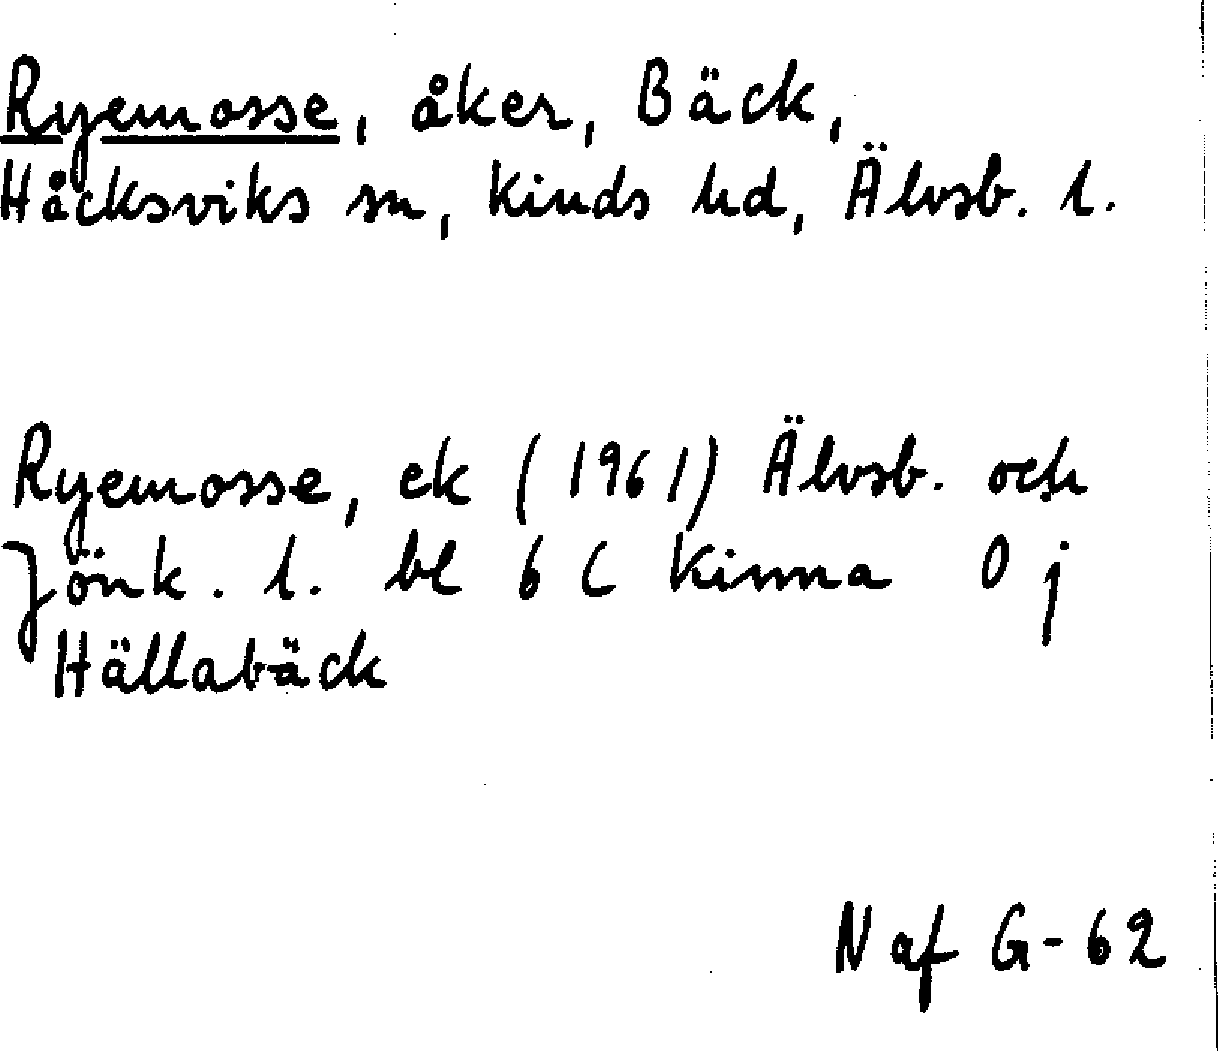 Ryemosse, åker, Bäck,
Håcksviks sn, Kinds hd, Älvsb. l.
Ryemosse, ek (1961) Älvsb. och
Jönk. l. bl 6 C Kinna 0 j
Hällabäck
N af G-62